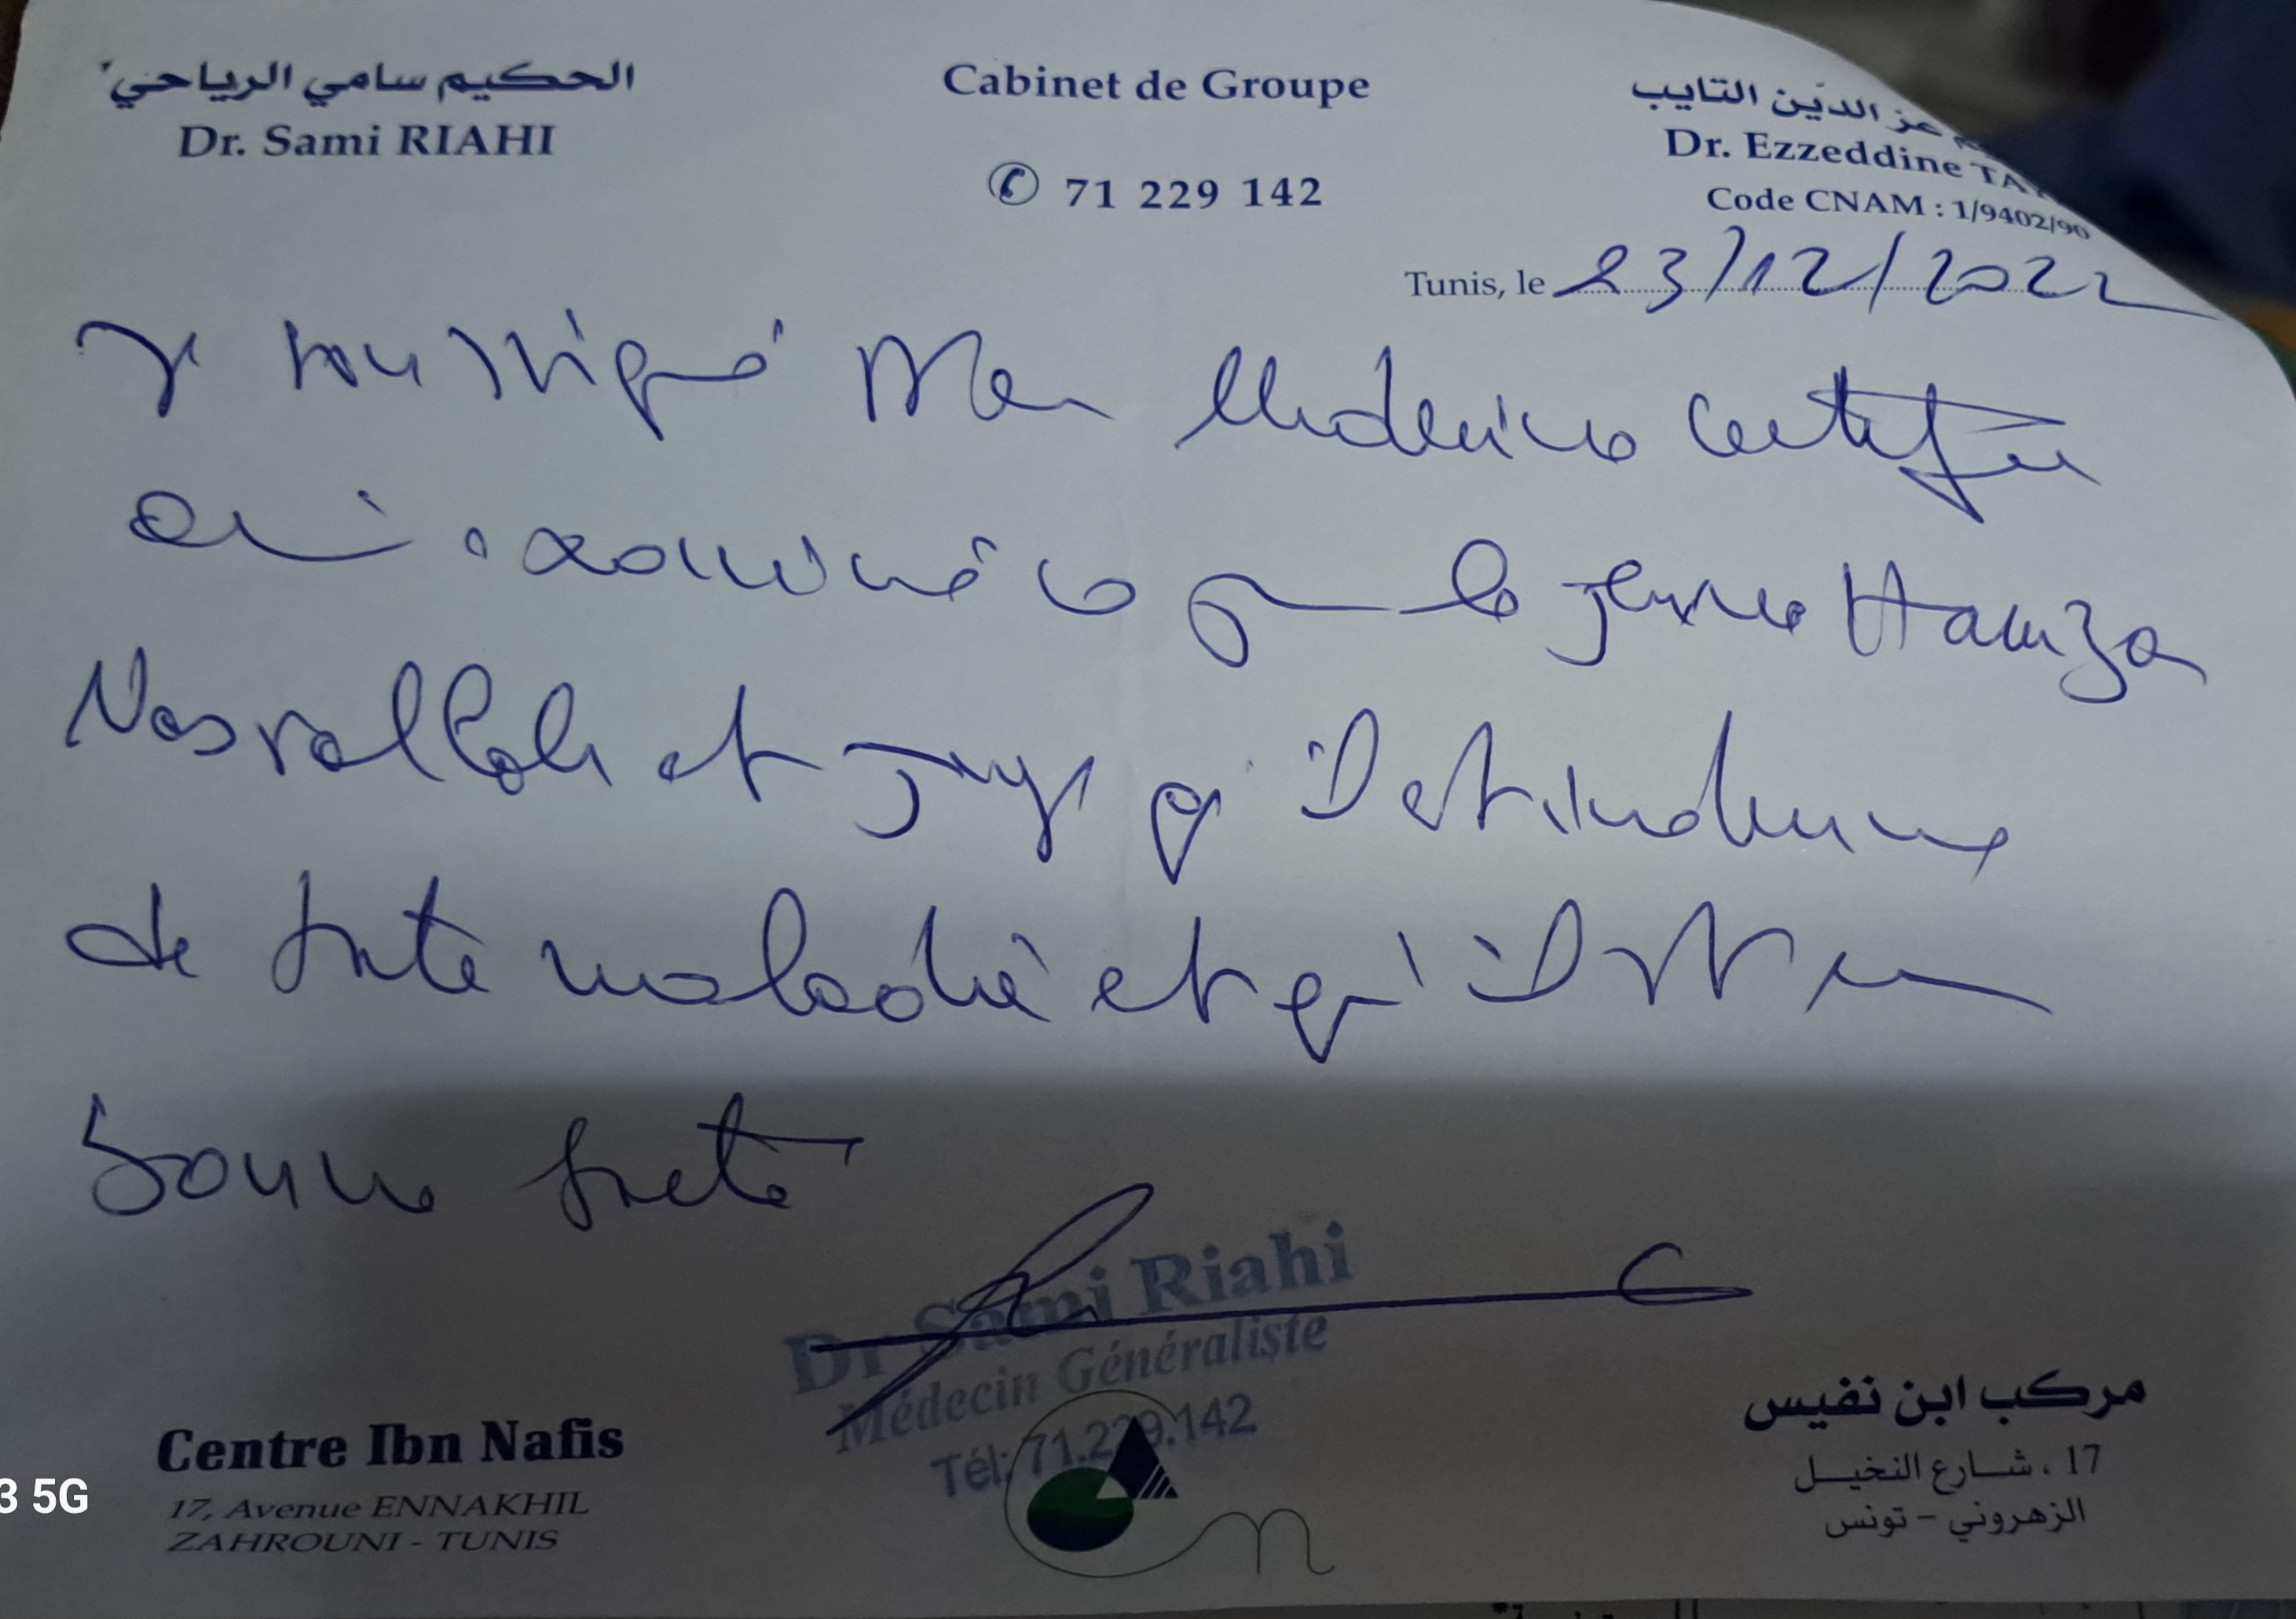 الحكيم سامي الرياحي
Dr. Sami RIAHI
Cabinet de Groupe
71 229 142
عز الدين التايب
Dr. Ezzeddine TAY
Code CNAM : 1/9402/90
Tunis, le 23/12/2022
Je soussigné Mon Medecin certifie
avoir examiné ce jour le jeune Hamza
Nasrallah et juge qu'il est indemne
de toute maladie et qu'il est en
bonne santé
Dr Sami Riahi
Médecin Généraliste
Tél: 71.229.142
Centre Ibn Nafis
17, Avenue ENNAKHIL
ZAHROUNI - TUNIS
مركب ابن نفيس
17 ، شارع النخيل
الزهروني - تونس
3 5G